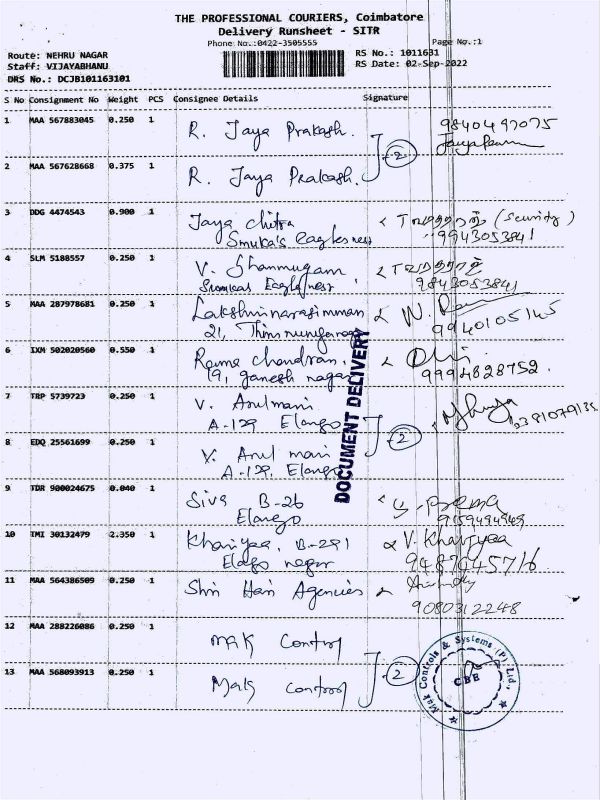 THE PROFESSIONAL COURIERS, Coimbatore
Delivery Runsheet - SITR
Phone No.:0422-3505555 Page No.:1
Route: NEHRU NAGAR RS No.: 1011631
Staff: VIJAYABHANU RS Date: 02-Sep-2022
DRS No.: DCJB101163101
S No Consignment No Weight PCS Consignee Details Signature
1 MAA 567883045 0.250 1 R. Jaya Prakash. 9840497075
2 MAA 567628668 0.375 1 R. Jaya Prakash. 2
3 DDG 4474543 0.900 1 Jaya chitra (Security)
9943053841
4 SLM 5188557 0.250 1 V. Shanmugam
9843053841
5 MAA 287978681 0.250 1 Lakshminarasimman
21, 9940105145
6 IXM 502020560 0.550 1 Rama Chandran.
19, ganesh nagar 9994828752.
DOCUMENT DELIVERY
7 TRP 5739723 0.250 1 V. Arulmani
A-129 Elango 2
8 EDQ 25561699 0.250 1 V. Arul mani
A-129, Elango
9 TDR 900024675 0.040 1 Siva B-26
Elango
10 TMI 30132479 2.350 1 B-291 V.
Elango nagar 9487945716
11 MAA 564386509 0.250 1 Shri Hari Agencies
9080312248
12 MAA 288226086 0.250 1 Mak Control
13 MAA 568093913 0.250 1 Mak Control 2
Mak Controls & Systems (P) Ltd.,
CBE